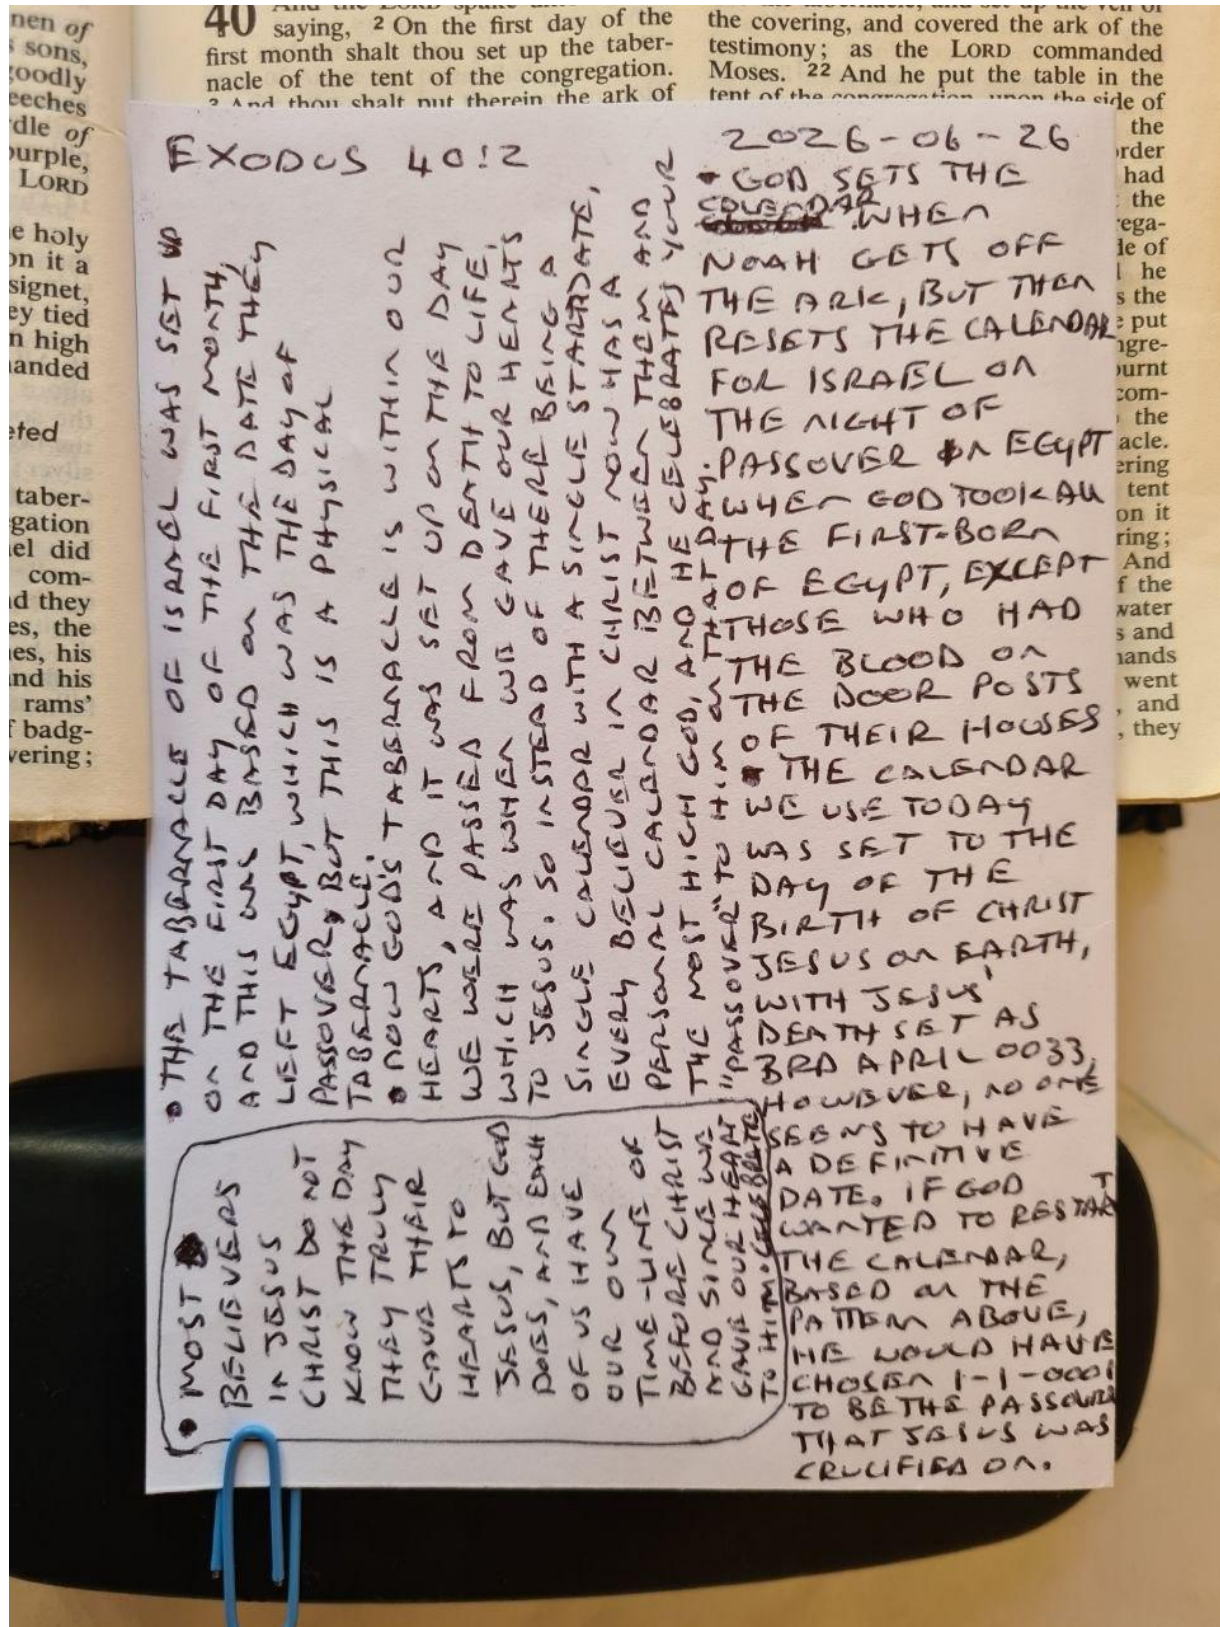 40 And the LORD spake
saying, 2 On the first day of the
first month shalt thou set up the taber-
nacle of the tent of the congregation.
3 And thou shalt put therein the ark of
the covering, and covered the ark of the
testimony; as the LORD commanded
Moses. 22 And he put the table in the
tent of the congregation, upon the side of
nen of
sons,
goodly
eeches
dle of
purple,
LORD
e holy
on it a
signet,
ey tied
n high
anded
eted
taber-
gation
el did
com-
d they
es, the
es, his
nd his
rams'
badg-
vering;
the
rder
had
the
ega-
le of
he
s the
put
ngre-
urnt
com-
the
acle.
ering
tent
on it
ring;
And
f the
water
s and
hands
went
, and
, they
EXODUS 40:2
2026-06-26
• THE TABERNACLE OF ISRAEL WAS SET UP
ON THE FIRST DAY OF THE FIRST MONTH,
AND THIS WAS BASED ON THE DATE THEY
LEFT EGYPT, WHICH WAS THE DAY OF
PASSOVER, BUT THIS IS A PHYSICAL
TABERNACLE.
• NOW GOD'S TABERNACLE IS WITHIN OUR
HEARTS, AND IT WAS SET UP ON THE DAY
WE WERE PASSED FROM DEATH TO LIFE,
WHICH WAS WHEN WE GAVE OUR HEARTS
TO JESUS. SO INSTEAD OF THERE BEING A
SINGLE CALENDAR WITH A SINGLE START DATE,
EVERY BELIEVER IN CHRIST NOW HAS A
PERSONAL CALENDAR BETWEEN THEM AND
THE MOST HIGH GOD, AND HE CELEBRATES YOUR
"PASSOVER" TO HIM ON THAT DAY.
• MOST
BELIEVERS
IN JESUS
CHRIST DO NOT
KNOW THE DAY
THEY TRULY
GAVE THEIR
HEARTS TO
JESUS, BUT GOD
DOES, AND EACH
OF US HAVE
OUR OWN
TIME-LINE OF
BEFORE CHRIST
AND SINCE WE
GAVE OUR HEART
TO HIM. CELEBRATE
• GOD SETS THE
COLENDAR WHEN
NOAH GETS OFF
THE ARK, BUT THEN
RESETS THE CALENDAR
FOR ISRAEL ON
THE NIGHT OF
PASSOVER IN EGYPT
WHEN GOD TOOK ALL
THE FIRST-BORN
OF EGYPT, EXCEPT
THOSE WHO HAD
THE BLOOD ON
THE DOOR POSTS
OF THEIR HOUSES
• THE CALENDAR
WE USE TODAY
WAS SET TO THE
DAY OF THE
BIRTH OF CHRIST
JESUS ON EARTH,
WITH JESUS'
DEATH SET AS
3RD APRIL 0033,
HOWEVER, NO ONE
SEEMS TO HAVE
A DEFINITIVE
DATE. IF GOD
WANTED TO RESTART
THE CALENDAR,
BASED ON THE
PATTERN ABOVE,
HE WOULD HAVE
CHOSEN 1-1-0001
TO BE THE PASSOVER
THAT JESUS WAS
CRUCIFIED ON.